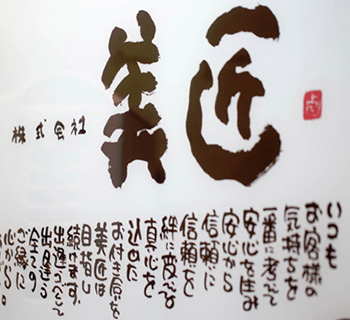 株式会社
美匠
いつも
お客様の
気持ちを
一番に考えて
安心を生み
安心から
信頼に
信頼を
絆に変える
真心を
込めた
お付き合いを
美匠は
目指し
続けます
出逢うべくして
出逢えた
全ての
ご縁に
心から。